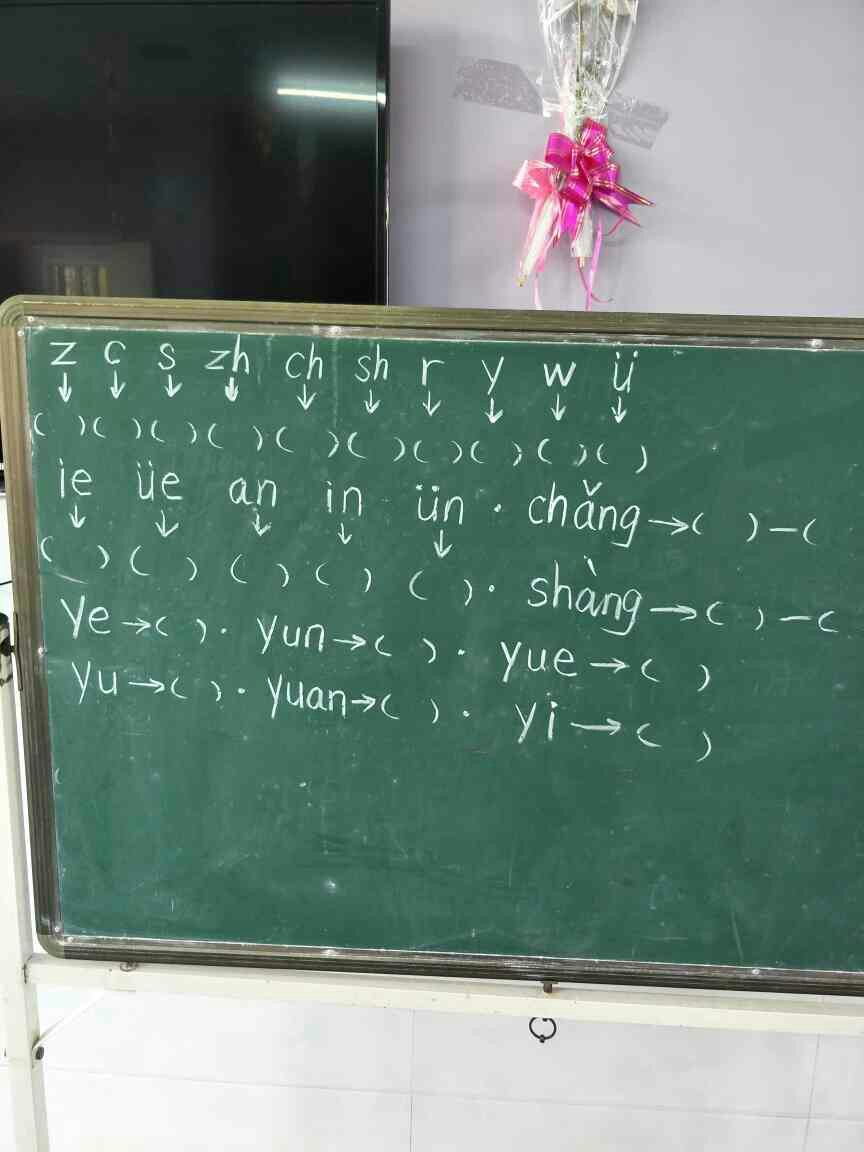 z c s zh ch sh r y w ü
↓ ↓ ↓ ↓ ↓ ↓ ↓ ↓ ↓ ↓
( ) ( ) ( ) ( ) ( ) ( ) ( ) ( ) ( ) ( )
ie üe an in ün · chǎng → ( ) — (
↓ ↓ ↓ ↓ ↓
( ) ( ) ( ) ( ) ( ) · shàng → ( ) — (
ye → ( ) · yun → ( ) · yue → ( )
yu → ( ) · yuan → ( ) · yi → ( )